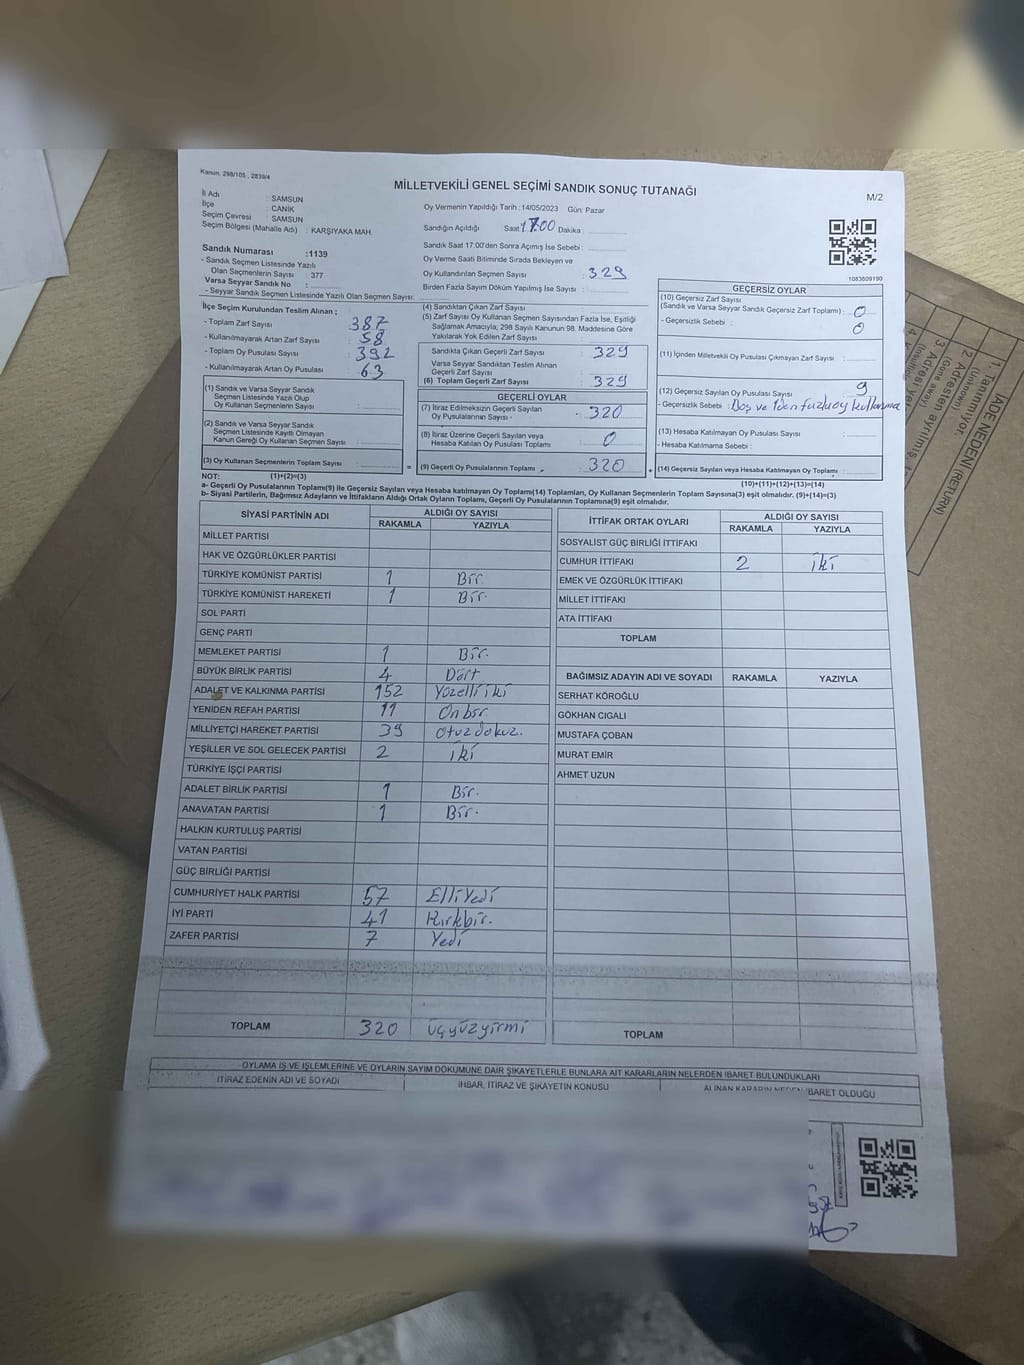 Kanun, 298/105 , 2839/4
MİLLETVEKİLİ GENEL SEÇİMİ SANDIK SONUÇ TUTANAĞI
M/2
İl Adı : SAMSUN
İlçe : CANİK
Seçim Çevresi : SAMSUN
Seçim Bölgesi (Mahalle Adı) : KARŞIYAKA MAH.
Sandık Numarası :1139
- Sandık Seçmen Listesinde Yazılı
Olan Seçmenlerin Sayısı : 377
Varsa Seyyar Sandık No :
- Seyyar Sandık Seçmen Listesinde Yazılı Olan Seçmen Sayısı:
Oy Vermenin Yapıldığı Tarih : 14/05/2023 Gün: Pazar
Sandığın Açıldığı Saat 17:00 Dakika :
Sandık Saat 17:00'den Sonra Açılmış İse Sebebi :
Oy Verme Saati Bitiminde Sırada Bekleyen ve
Oy Kullandırılan Seçmen Sayısı : 329
Birden Fazla Sayım Döküm Yapılmış İse Sayısı :
1083609190
İlçe Seçim Kurulundan Teslim Alınan ;
- Toplam Zarf Sayısı : 387
- Kullanılmayarak Artan Zarf Sayısı : 58
- Toplam Oy Pusulası Sayısı : 392
- Kullanılmayarak Artan Oy Pusulası : 63
(1) Sandık ve Varsa Seyyar Sandık
Seçmen Listesinde Yazılı Olup
Oy Kullanan Seçmenlerin Sayısı :
(2) Sandık ve Varsa Seyyar Sandık
Seçmen Listesinde Kayıtlı Olmayan
Kanun Gereği Oy Kullanan Seçmen Sayısı :
(3) Oy Kullanan Seçmenlerin Toplam Sayısı :
(4) Sandıktan Çıkan Zarf Sayısı :
(5) Zarf Sayısı Oy Kullanan Seçmen Sayısından Fazla İse, Eşitliği
Sağlamak Amacıyla, 298 Sayılı Kanunun 98. Maddesine Göre
Yakılarak Yok Edilen Zarf Sayısı :
Sandıkta Çıkan Geçerli Zarf Sayısı : 329
Varsa Seyyar Sandıktan Teslim Alınan
Geçerli Zarf Sayısı :
(6) Toplam Geçerli Zarf Sayısı : 329
GEÇERLİ OYLAR
(7) İtiraz Edilmeksizin Geçerli Sayılan
Oy Pusulalarının Sayısı : 320
(8) İtiraz Üzerine Geçerli Sayılan veya
Hesaba Katılan Oy Pusulası Toplamı : 0
(9) Geçerli Oy Pusulalarının Toplamı : 320
GEÇERSİZ OYLAR
(10) Geçersiz Zarf Sayısı
(Sandık ve Varsa Seyyar Sandık Geçersiz Zarf Toplamı) : 0
- Geçersizlik Sebebi : 0
(11) İçinden Milletvekili Oy Pusulası Çıkmayan Zarf Sayısı :
(12) Geçersiz Sayılan Oy Pusulası Sayısı : 9
- Geçersizlik Sebebi : Boş ve 1den fazla oy kullanma
(13) Hesaba Katılmayan Oy Pusulası Sayısı :
- Hesaba Katılmama Sebebi :
(14) Geçersiz Sayılan veya Hesaba Katılmayan Oy Toplamı :
NOT: (1)+(2)=(3) (10)+(11)+(12)+(13)=(14)
a- Geçerli Oy Pusulalarının Toplamı(9) ile Geçersiz Sayılan veya Hesaba katılmayan Oy Toplamı(14) Toplamları, Oy Kullanan Seçmenlerin Toplam Sayısına(3) eşit olmalıdır. (9)+(14)=(3)
b- Siyasi Partilerin, Bağımsız Adayların ve İttifakların Aldığı Ortak Oyların Toplamı, Geçerli Oy Pusulalarının Toplamına(9) eşit olmalıdır.
SİYASİ PARTİNİN ADI ALDIĞI OY SAYISI
RAKAMLA YAZIYLA
MİLLET PARTİSİ
HAK VE ÖZGÜRLÜKLER PARTİSİ
TÜRKİYE KOMÜNİST PARTİSİ 1 Bir.
TÜRKİYE KOMÜNİST HAREKETİ 1 Bir.
SOL PARTİ
GENÇ PARTİ
MEMLEKET PARTİSİ 1 Bir.
BÜYÜK BİRLİK PARTİSİ 4 Dört
ADALET VE KALKINMA PARTİSİ 152 Yüzelliiki
YENİDEN REFAH PARTİSİ 11 Onbir.
MİLLİYETÇİ HAREKET PARTİSİ 39 otuzdokuz.
YEŞİLLER VE SOL GELECEK PARTİSİ 2 iki
TÜRKİYE İŞÇİ PARTİSİ
ADALET BİRLİK PARTİSİ 1 Bir.
ANAVATAN PARTİSİ 1 Bir.
HALKIN KURTULUŞ PARTİSİ
VATAN PARTİSİ
GÜÇ BİRLİĞİ PARTİSİ
CUMHURİYET HALK PARTİSİ 57 ElliYedi
İYİ PARTİ 41 Kırkbir.
ZAFER PARTİSİ 7 Yedi
TOPLAM 320 üçyüzyirmi
İTTİFAK ORTAK OYLARI ALDIĞI OY SAYISI
RAKAMLA YAZIYLA
SOSYALİST GÜÇ BİRLİĞİ İTTİFAKI
CUMHUR İTTİFAKI 2 iki
EMEK VE ÖZGÜRLÜK İTTİFAKI
MİLLET İTTİFAKI
ATA İTTİFAKI
TOPLAM
BAĞIMSIZ ADAYIN ADI VE SOYADI RAKAMLA YAZIYLA
SERHAT KÖROĞLU
GÖKHAN CIGALI
MUSTAFA ÇOBAN
MURAT EMİR
AHMET UZUN
TOPLAM
OYLAMA İŞ VE İŞLEMLERİNE VE OYLARIN SAYIM DÖKÜMÜNE DAİR ŞİKAYETLERLE BUNLARA AİT KARARLARIN NELERDEN İBARET BULUNDUKLARI
İTİRAZ EDENİN ADI VE SOYADI İHBAR, İTİRAZ VE ŞİKAYETİN KONUSU ALINAN KARARIN NEDEN İBARET OLDUĞU
İADE NEDENİ (RETURN)
1. Tanınmıyor
(Unknown)
2. Adresten ayrılmış
(Gone away)
3. Adresi